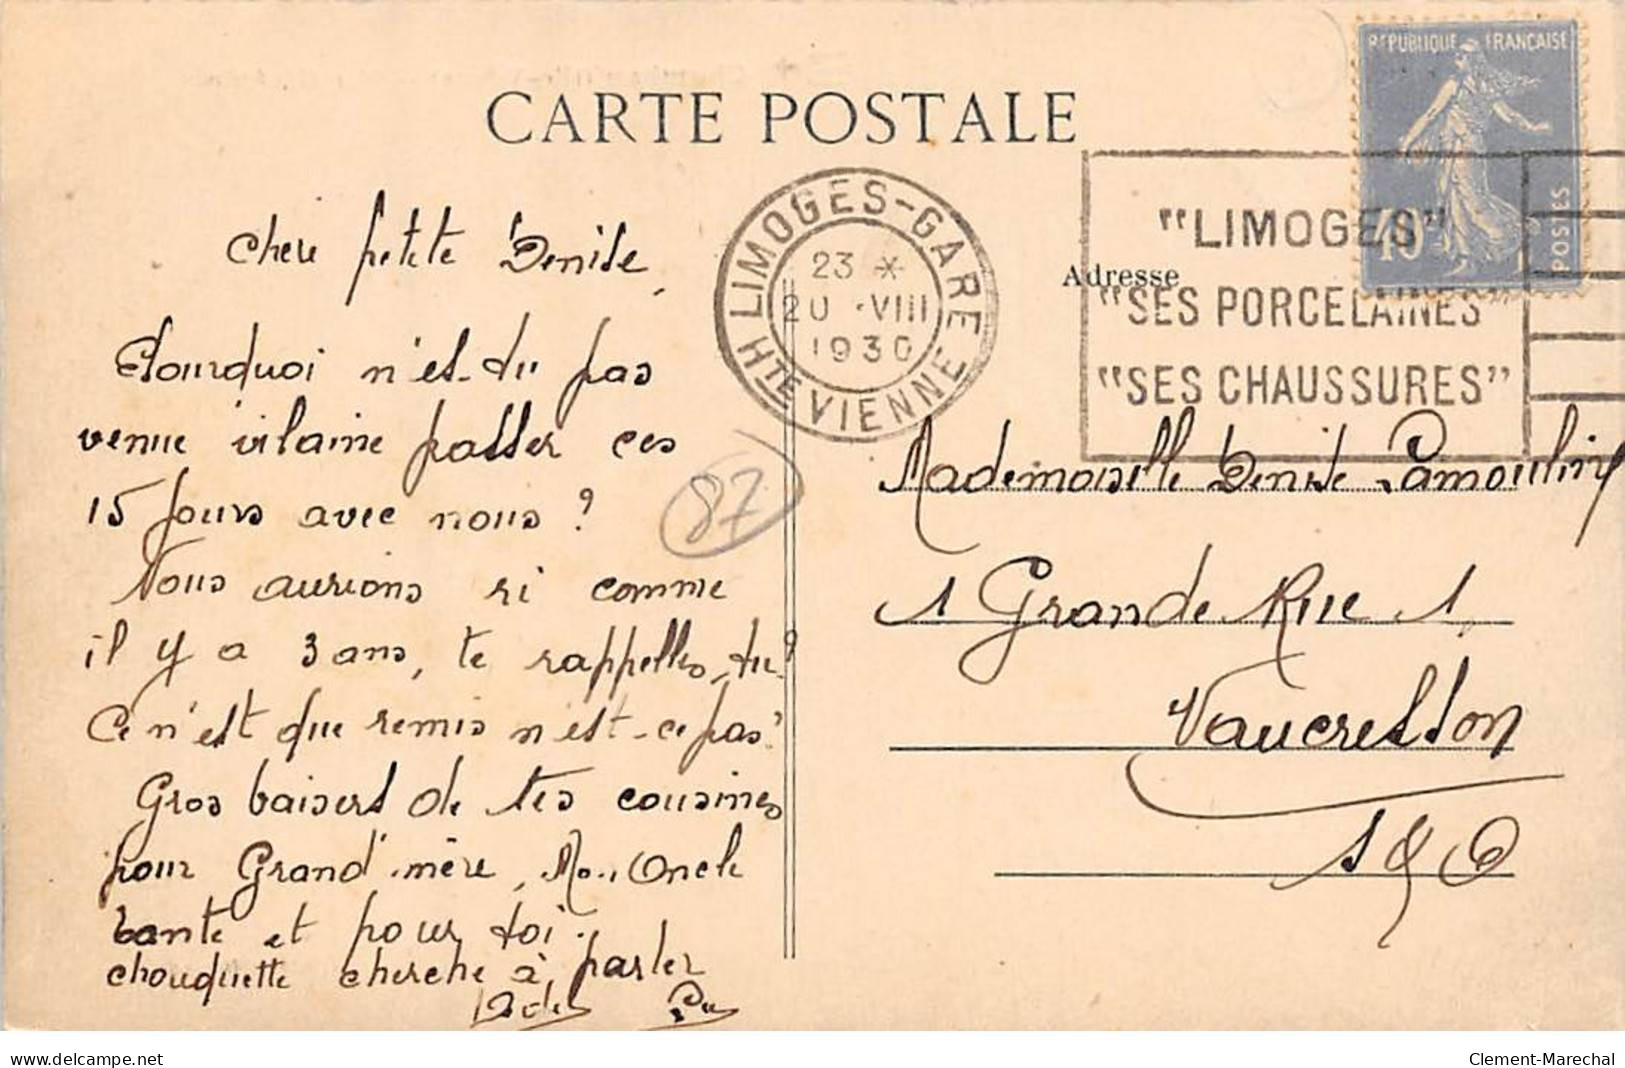 CARTE POSTALE
REPUBLIQUE FRANÇAISE
40
POSTES
LIMOGES-GARE
23 *
20 -VIII
1930
HTE VIENNE
"LIMOGES"
"SES PORCELAINES"
"SES CHAUSSURES"
Adresse
Chère petite Denise,
Pourquoi n'es-tu pas
venue vilaine passer ces
15 jours avec nous ?
87
Nous aurions ri comme
il y a 3 ans, te rappelles-tu ?
Ce n'est que remis n'est-ce pas ?
Gros baisers de tes cousines
pour Grand'mère, Mon Oncle
tante et pour toi.
chouquette cherche à parler
Mademoiselle Denise
1 Grande Rue 1,
Vaucresson
S & O
www.delcampe.net
Clement-Marechal